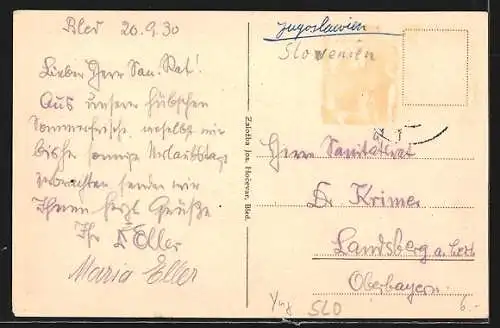 Bled 20.9.30
Lieber Herr San. Rat!
Aus unserer hübschen
Sommerfrische, woselbst wir
bisher sonnige Urlaubstage
verbrachten senden wir
Ihnen herzl. Grüße
Ihr Eller
Maria Eller
Založba Jos. Hočevar, Bled.
Jugoslawien
Slovenien
Herrn Sanitätsrat
Dr Krimer
Landsberg a. Lech
Oberbayern
Yug SLO
6.-